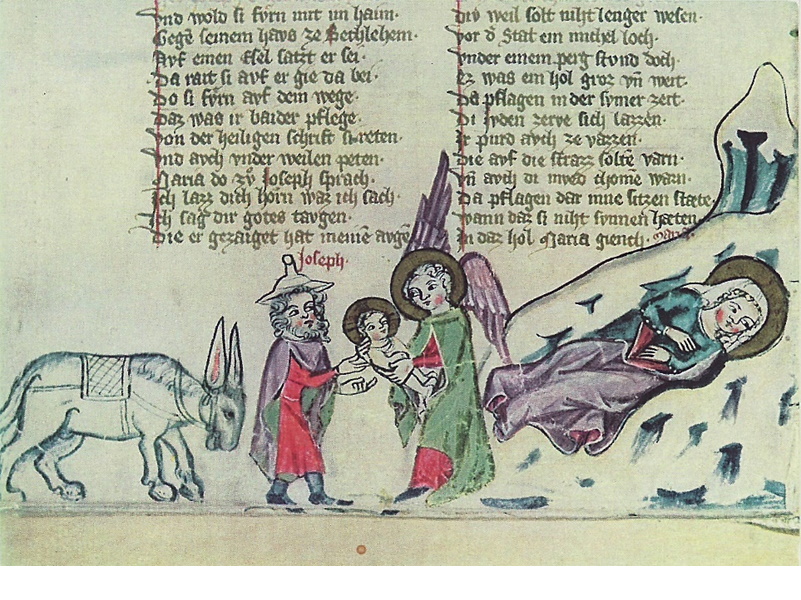 vnd wold si fvrn mit im haim·
Gegē seinem havs ze Bethlehem·
Avf einen Esel satzt er sei·
Da rait si avf er gie da bei·
Do si fvrn avf dem wege·
daz was ir baider pflege·
von der heiligen schrift si reten·
vnd avch vnder weilen peten·
Maria do zv Joseph sprach·
ich lazz dich horn waz ich sach·
Ich sag dir gotes tavgen·
Die er gezaiget hat meinē avgē
Joseph·
div weil solt niht lenger wesen·
vor d̄ Stat ein michel loch·
vnder einem perg stvnd doch·
ez was ein hol groz vn̄ weit·
Da pflagen in der svmer zeit·
Di ivden zerve sich lazzen·
Ir purd avch ze vazzen·
die avf die strazz solten varn·
vn̄ avch di mved chomē warn·
Da pflagen dar inne sitzen stæte
wann daz si niht synnen hæten
In daz hol Maria giench· maria·